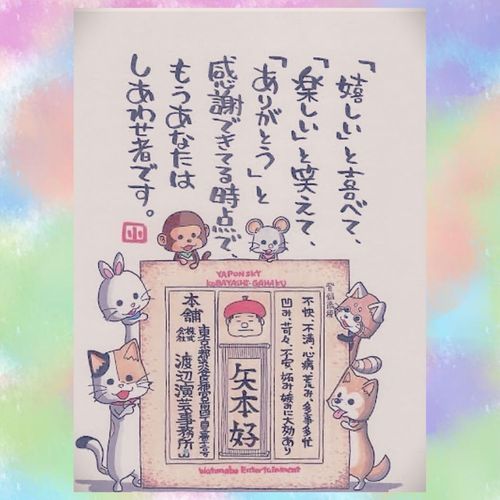 「嬉しい」と喜べて、
「楽しい」と笑えて、
「ありがとう」と
感謝できてる時点で、
もうあなたは
しあわせ者です。
小
YAPONSKY
KOBAYASHI・GAHAKU
登録商標
不快、不満、心病、荒み、多事多忙
凹み、苛々、不安、妬み嫉みに大効あり
矢本好
本舗
株式会社
渡辺演芸事務所
Watanabe Entertainment